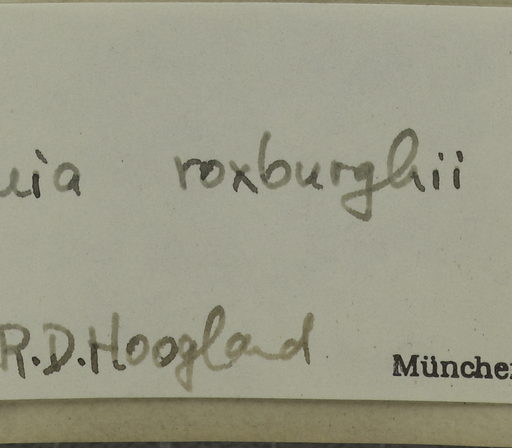 uia roxburghii
R.D.Hoogland
Münche